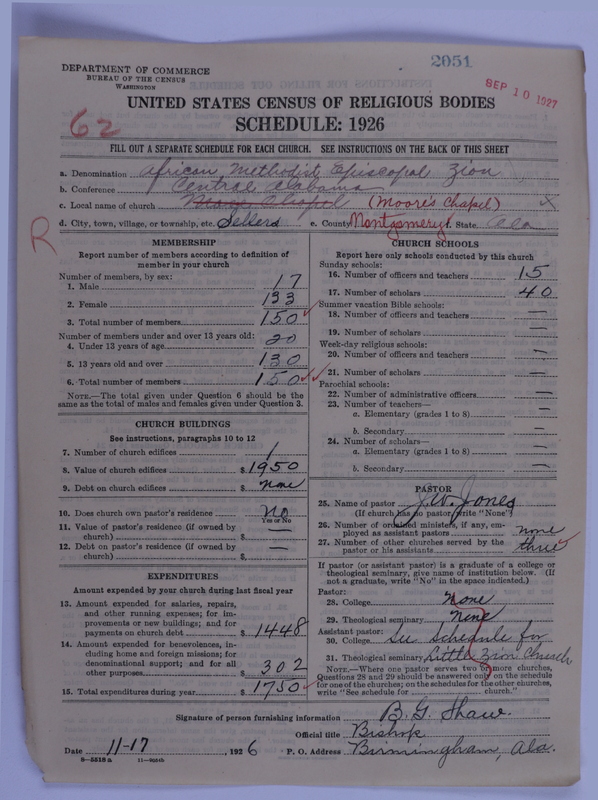 2051
SEP 10 1927
DEPARTMENT OF COMMERCE
BUREAU OF THE CENSUS
WASHINGTON
62
UNITED STATES CENSUS OF RELIGIOUS BODIES
SCHEDULE: 1926
FILL OUT A SEPARATE SCHEDULE FOR EACH CHURCH. SEE INSTRUCTIONS ON THE BACK OF THIS SHEET
a. Denomination African Methodist Episcopal Zion
b. Conference Central Alabama
c. Local name of church Chapel (Moore's Chapel) X
d. City, town, village, or township, etc. Sellers e. County Montgomery f. State Ala
R
MEMBERSHIP
Report number of members according to definition of member in your church
Number of members, by sex:
1. Male 17
2. Female 133
3. Total number of members 150
Number of members under and over 13 years old:
4. Under 13 years of age 20
5. 13 years old and over 130
6. Total number of members 150
NOTE.—The total given under Question 6 should be the same as the total of males and females given under Question 3.
CHURCH BUILDINGS
See instructions, paragraphs 10 to 12
7. Number of church edifices 1
8. Value of church edifices $ 1950
9. Debt on church edifices $ none
10. Does church own pastor's residence No
Yes or No
11. Value of pastor's residence (if owned by church) $ —
12. Debt on pastor's residence (if owned by church) $ —
EXPENDITURES
Amount expended by your church during last fiscal year
13. Amount expended for salaries, repairs, and other running expenses; for improvements or new buildings; and for payments on church debt $ 1448
14. Amount expended for benevolences, including home and foreign missions; for denominational support; and for all other purposes $ 302
15. Total expenditures during year $ 1750
CHURCH SCHOOLS
Report here only schools conducted by this church
Sunday schools:
16. Number of officers and teachers 15
17. Number of scholars 40
Summer vacation Bible schools:
18. Number of officers and teachers —
19. Number of scholars —
Week-day religious schools:
20. Number of officers and teachers —
21. Number of scholars —
Parochial schools:
22. Number of administrative officers —
23. Number of teachers—
a. Elementary (grades 1 to 8) —
b. Secondary —
24. Number of scholars—
a. Elementary (grades 1 to 8) —
b. Secondary —
PASTOR
25. Name of pastor J.W. Jones
(If church has no pastor, write "None")
26. Number of ordained ministers, if any, employed as assistant pastors none
27. Number of other churches served by the pastor or his assistants three
If pastor (or assistant pastor) is a graduate of a college or theological seminary, give name of institution below. (If not a graduate, write "No" in the space indicated.)
Pastor:
28. College None
29. Theological seminary None
Assistant pastor:
30. College See Schedule for
31. Theological seminary Little Zion Church
NOTE.—Where one pastor serves two or more churches, Questions 28 and 29 should be answered only on the schedule for one of the churches; on the schedules for the other churches, write "See schedule for ____ church."
Signature of person furnishing information B. G. Shaw.
Official title Bishop
Date 11-17, 1926 P. O. Address Birmingham, Ala.
8—5518a 11—9054b